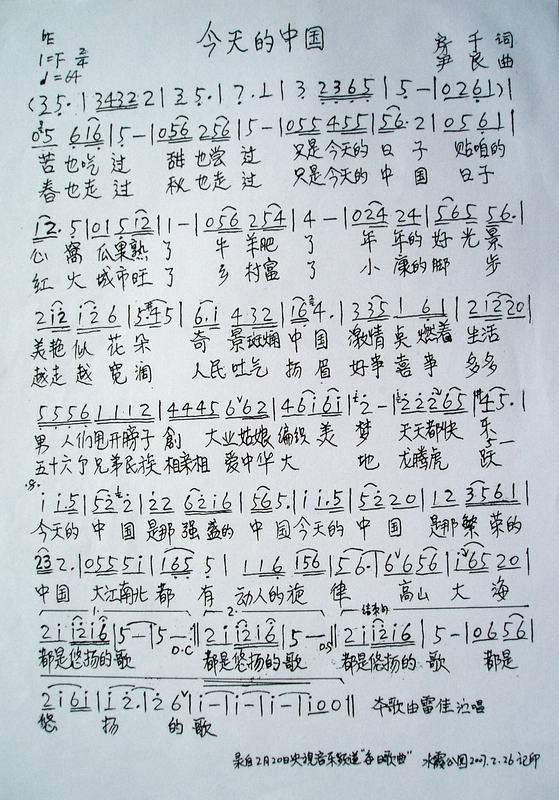 今天的中国
1=F 2/4
♩=64
房千 词
尹良 曲
(3 5· | 3432 2 | 3 5· | 7· 1 | 3 2365 | 5 - | 0261) |
055 616 | 5 - | 056 256 | 5 - | 055 455 | 56· 2 | 0561 |
苦也吃过 甜也尝过 只是今天的日子 贴咱的
春也走过 秋也走过 只是今天的中国 日子
12· 5 | 01512 | 1 - | 056 254 | 4 - | 024 24 | 565 56· |
心窝 瓜果熟了 牛羊肥了 年年的好光景
红火 城市旺了 乡村富了 小康的脚步
212 126 | 545 | 6·1 432 | 164· | 335 1 61 | 21220 |
美艳似花朵 奇景斑斓中国 激情点燃着生活
越走越宽阔 人民吐气扬眉 好事喜事多多
5556 1112 | 4445 662 | 46161 | 2 - | 222265 | 45· |
男人们甩开膀子创大业姑娘编织美梦 天天都快乐
五十六个兄弟民族相亲相爱中华大地 龙腾虎跃
1 1·5 | 522 | 22 6216 | 565· | 1 1·5 | 5220 | 12 3561 |
今天的中国是那强盛的中国今天的中国 是那繁荣的
23 2· | 05551 | 165 5 | 116 156 | 56· | 6 656 | 165 20 |
中国 大江南北都有 动人的旋律 高山大海
1. 2. 结束句
21 1216 | 5 - | 5 - D.C | 21 1216 | 5 - D.S | 21 1216 | 5 - | 0656 |
都是悠扬的歌 都是悠扬的歌 都是悠扬的歌 都是
2161 | 12· | 26 | 1 - | 1 - | 1 - | 100 ‖ 本歌由雷佳演唱
悠扬的歌
录自2月20日央视音乐频道"每日歌曲" 水霞公园2007.2.26记印